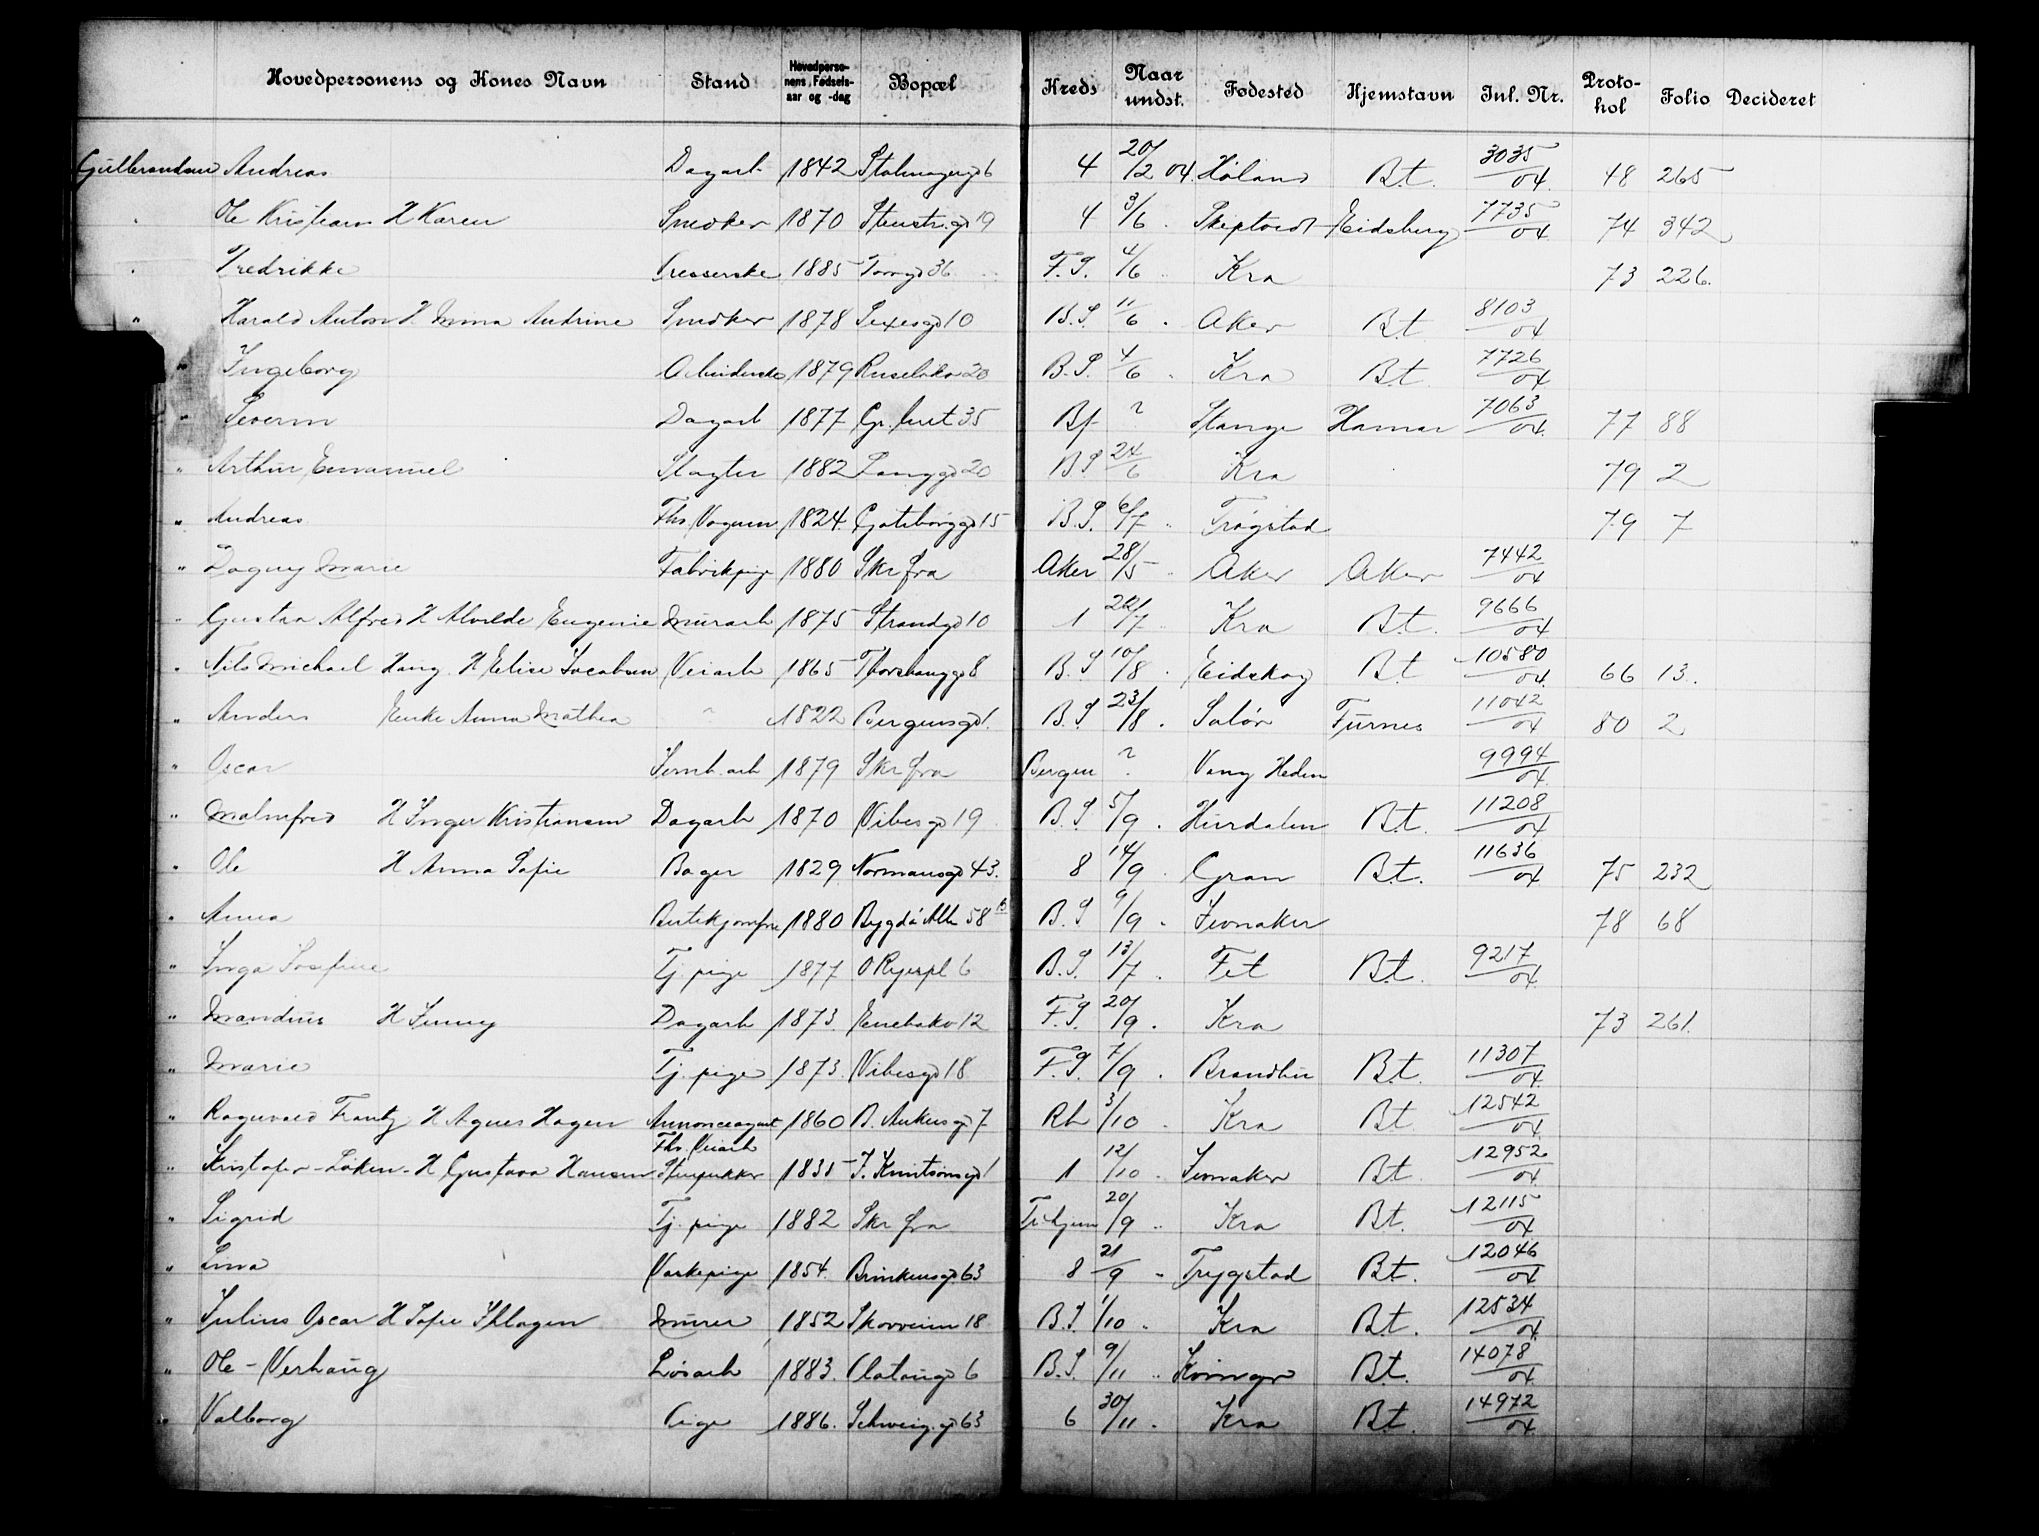 Hovedpersonens og Kones Navn Stand Hovedpersonens Fødselsaar og -dag Bopæl Kreds Naar undst. Fødested Hjemstavn Inl. Nr. Protokol Folio Decideret
Gulbrandsen Andreas Dagarb 1842 6 4 20/2 04. Høland B.t. 3035/04. 48 265
" Ole Kristian H Karen Snedker 1870 Stenstr.gd 19 4 3/6 . Skiptvedt Eidsberg 7735/04 74 342
" Fredrikke Presserske 1885 Torvgd 36 F.S. 4/6 " Kra 73 226.
" Harald Anton H. Anna Andrine Snedker 1878 Sexesgd 10 B.S. 11/6 . Aker B.t 8103/04
" Ingeborg Arbeiderske 1879 Ruseløkv 20 B.S. 4/6 " Kra B.t. 7726/04
" Severin Dagarb 1877 Gr. 35 Bf ? Stange Hamar 7063/04. 77 88
" Arthur Emanuel Slagter 1882 Langgd 20 B.S 24/6 Kra 79 2
" Andreas Fhv. Vognm 1824. Gøteborggd 15 B.S. 6/7 " Trøgstad 79 7
" Dagny Marie Fabrikpige 1880 Skr fra Aker 28/5 " Aker Aker 7442/04
" Gustav Alfred H Alvilde Eugenie Murarb 1875 Strandgd 10 1 22/7 " Kra B.t. 9666/04
" Nils Michael Haug. H Elise Jacobsen Veiarb 1865 Thorshauggd 8 B.S 10/8 . Eidskog B.t 10580/04. 66 13.
" Anders Enke Anna Mathea " 1822 Bergensgd 1. B.S 23/8 . Solør Furnes 11042/04 80 2
" Oscar Jernb.arb 1879 Skr fra Bergen ? . Vang Hedm 9994/04.
" Malmfred H Inger Kristiansen Dagarb 1870 Vibesgd 19 B.S 5/9 . Hurdalen B.t. 11208/04
" Ole H Anna Sofie Bager 1829. Normansgd 43. 8 14/9 . Gran B.t. 11636/04 75 232
" Anna Butikjomfru 1880 Bygdø Alle 58 B B.S 9/9 . Jevnaker 78 68
" Inga Josefine Tj. pige 1877 O Ryespl 6 B.S. 13/7 . Fet B.t. 9217/04.
" Mandius H Jenny Dagarb 1873. Enebakv 12 F.S. 20/9 . Kra 73 261.
" Marie Tj. pige 1873. Vibesgd 18 F.S. 7/9 . Brandbu B.t. 11307/04.
" Ragnvald Frantz H Agnes Hagen Annonceagent 1860 B. Ankersgd 7 Rh 3/10 . Kra B.t 12542/04.
" Kristofer - Løken - H Gustava Hansen Fhv. Veiarb Stenpukker 1835 J. Knutsonsgd 1 1 12/10 . Jevnaker B.t 12952/04
" Sigrid Tj. pige 1882 Skr fra 20/9 " Kra B.t. 12115/04
" Lina Vaskepige 1854. Brinkensgd. 63 8 21/9 " Trygstad B.t. 12046/04
" Julius Oscar H Sofie Murer 1852 Skovveien 18 B.S. 1/10 . Kra B.t. 12534/04.
" Ole - Verhaug Løsarb 1883. Platougd 6 B.S. 9/11 " B.t. 14078/04
" Valborg Pige 1886. Schweig.gd 63 6 30/11 . Kra B.t 14972/04